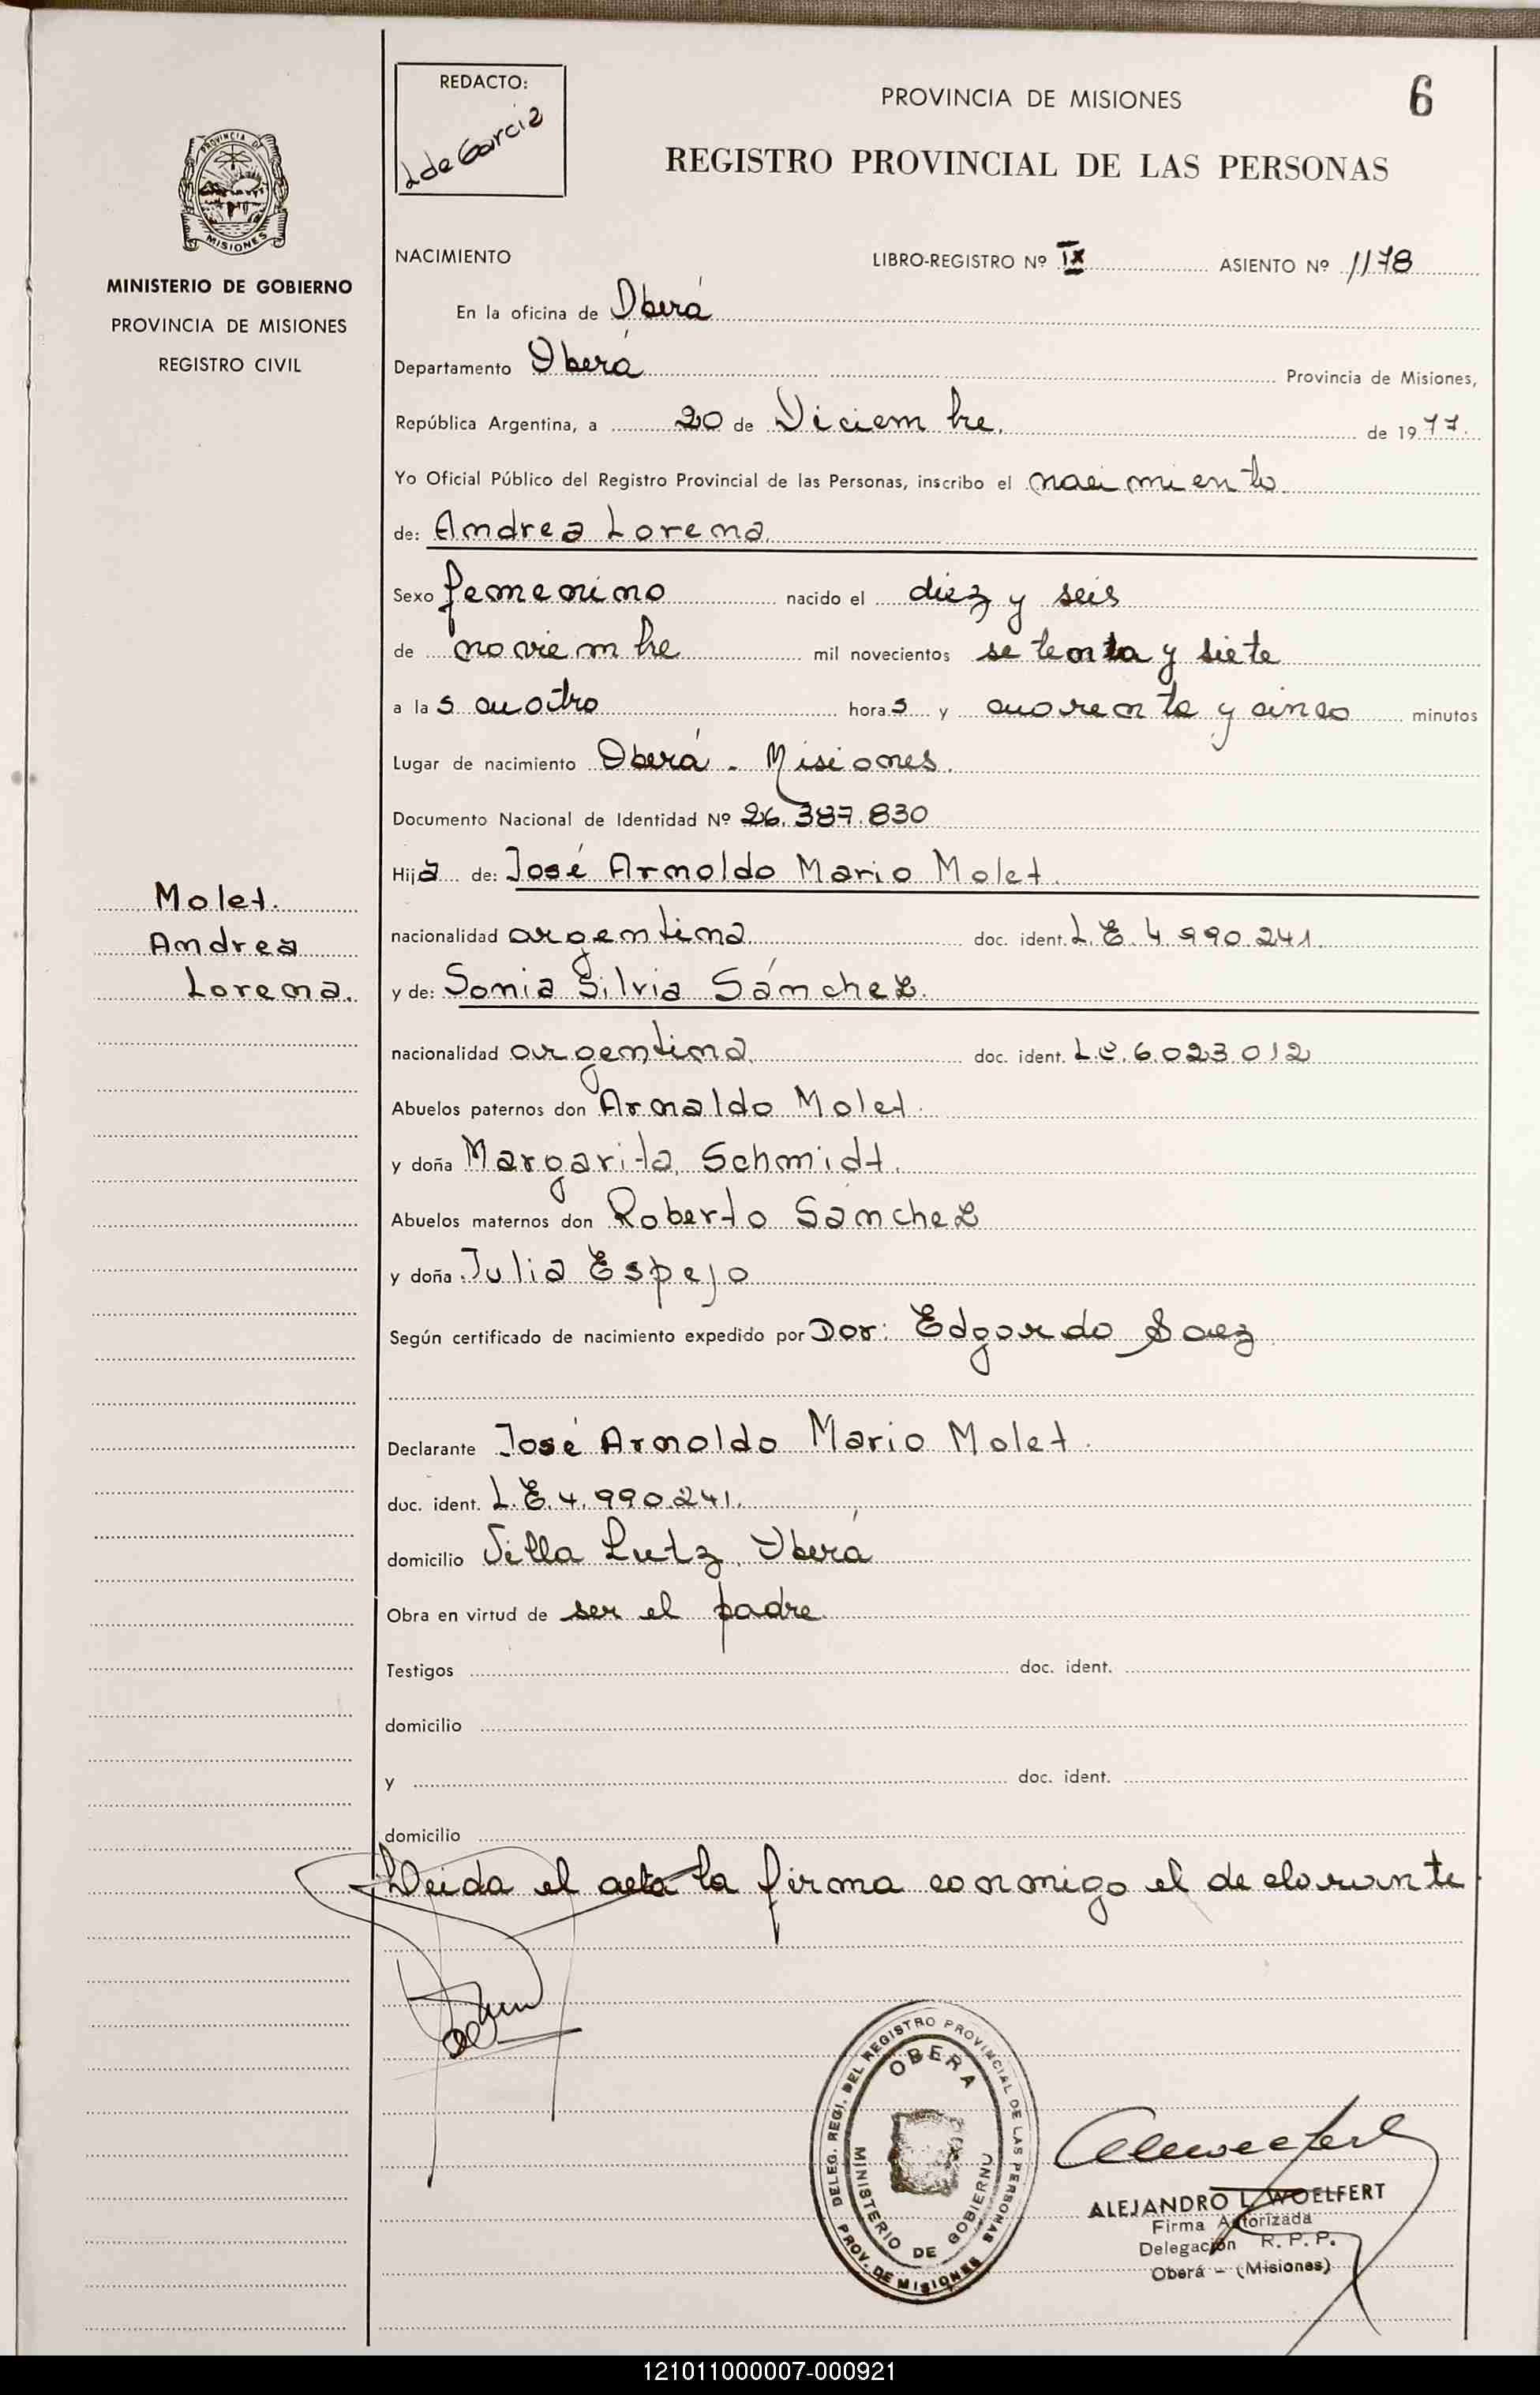 REDACTO:
L de Garcia
PROVINCIA DE MISIONES
6
REGISTRO PROVINCIAL DE LAS PERSONAS
PROVINCIA DE
MISIONES
MINISTERIO DE GOBIERNO
PROVINCIA DE MISIONES
REGISTRO CIVIL
NACIMIENTO LIBRO-REGISTRO Nº IX ASIENTO Nº 1178
En la oficina de Oberá
Departamento Oberá Provincia de Misiones,
República Argentina, a 20 de Diciembre. de 1977.
Yo Oficial Público del Registro Provincial de las Personas, inscribo el nacimiento
de: Andrea Lorena.
Sexo femenino nacido el diez y seis
de noviembre mil novecientos setenta y siete
a las cuatro horas y cuarenta y cinco minutos
Lugar de nacimiento Oberá - Misiones.
Documento Nacional de Identidad Nº 26.387.830
Hija de: José Arnoldo Mario Molet.
Molet.
Andrea
Lorena.
nacionalidad argentina doc. ident. L.E. 4.990.241.
y de: Sonia Silvia Sánchez.
nacionalidad argentina. doc. ident. L.C. 6.023.012
Abuelos paternos don Arnaldo Molet.
y doña Margarita Schmidt.
Abuelos maternos don Roberto Sánchez
y doña Julia Espejo
Según certificado de nacimiento expedido por Dor: Edgardo Saez.
Declarante José Arnoldo Mario Molet.
doc. ident. L.E. 4.990.241.
domicilio Villa Lutz, Oberá
Obra en virtud de ser el padre.
Testigos doc. ident.
domicilio
y doc. ident.
domicilio
Leida el acta la firma conmigo el declarante.
DELEG. REGI. DEL REGISTRO PROVINCIAL DE LAS PERSONAS
OBERA
MINISTERIO DE GOBIERNO
PROV. DE MISIONES
ALEJANDRO L. WOELFERT
Firma Autorizada
Delegación R. P. P.
Oberá - (Misiones)
121011000007-000921